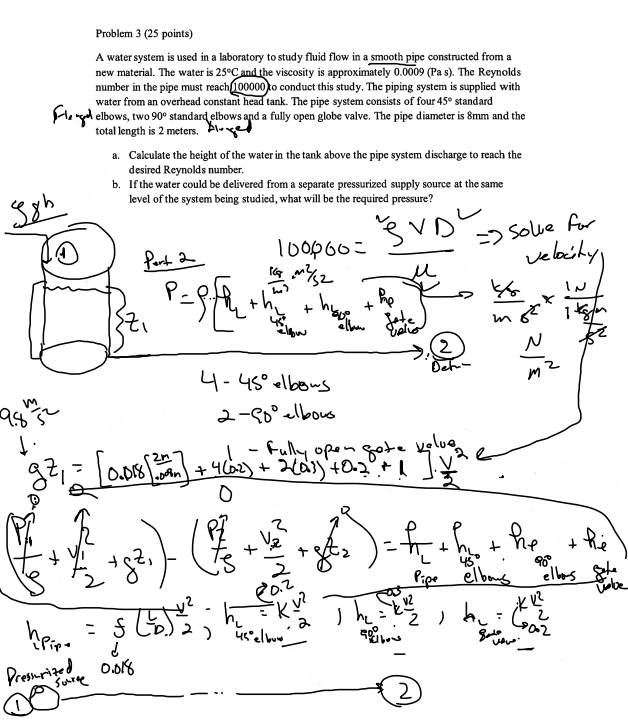 Problem 3 (25 points)
A water system is used in a laboratory to study fluid flow in a smooth pipe constructed from a
new material. The water is 25°C and the viscosity is approximately 0.0009 (Pa s). The Reynolds
number in the pipe must reach 100000 to conduct this study. The piping system is supplied with
water from an overhead constant head tank. The pipe system consists of four 45° standard
elbows, two 90° standard elbows and a fully open globe valve. The pipe diameter is 8mm and the
total length is 2 meters.
a. Calculate the height of the water in the tank above the pipe system discharge to reach the
desired Reynolds number.
b. If the water could be delivered from a separate pressurized supply source at the same
level of the system being studied, what will be the required pressure?
ρgh
1
Part 2
100,000 = "ρVD" / μ => solve for velocity
P = ρ [h_L + h_L 45° elbow + h_L 90° elbow + h_p gate valve]
kg/m³ m²/s²
kg/m s² × 1N / 1 kg m/s²
N/m²
Z₁
2
4 - 45° elbows
2 - 90° elbows
1 - fully open gate valve
9.8 m/s²
gZ₁ = [0.018 [2m/.008m] + 4(0.2) + 2(0.3) + 0.2 + 1] V²/2
(P₁/ρ + V₁²/2 + gZ₁) - (P₂/ρ + V₂²/2 + gZ₂) = h_L Pipe + h_L 45° elbows + h_e 90° elbows + h_e gate valve
h_L Pipe = f (L/D) V²/2 ; h_L 45° elbow = K V²/2 , h_L 90° elbows = K V²/2 , h_L gate valve = K V²/2
0.018
0.2
0.3
0.2
Pressurized source
1
2